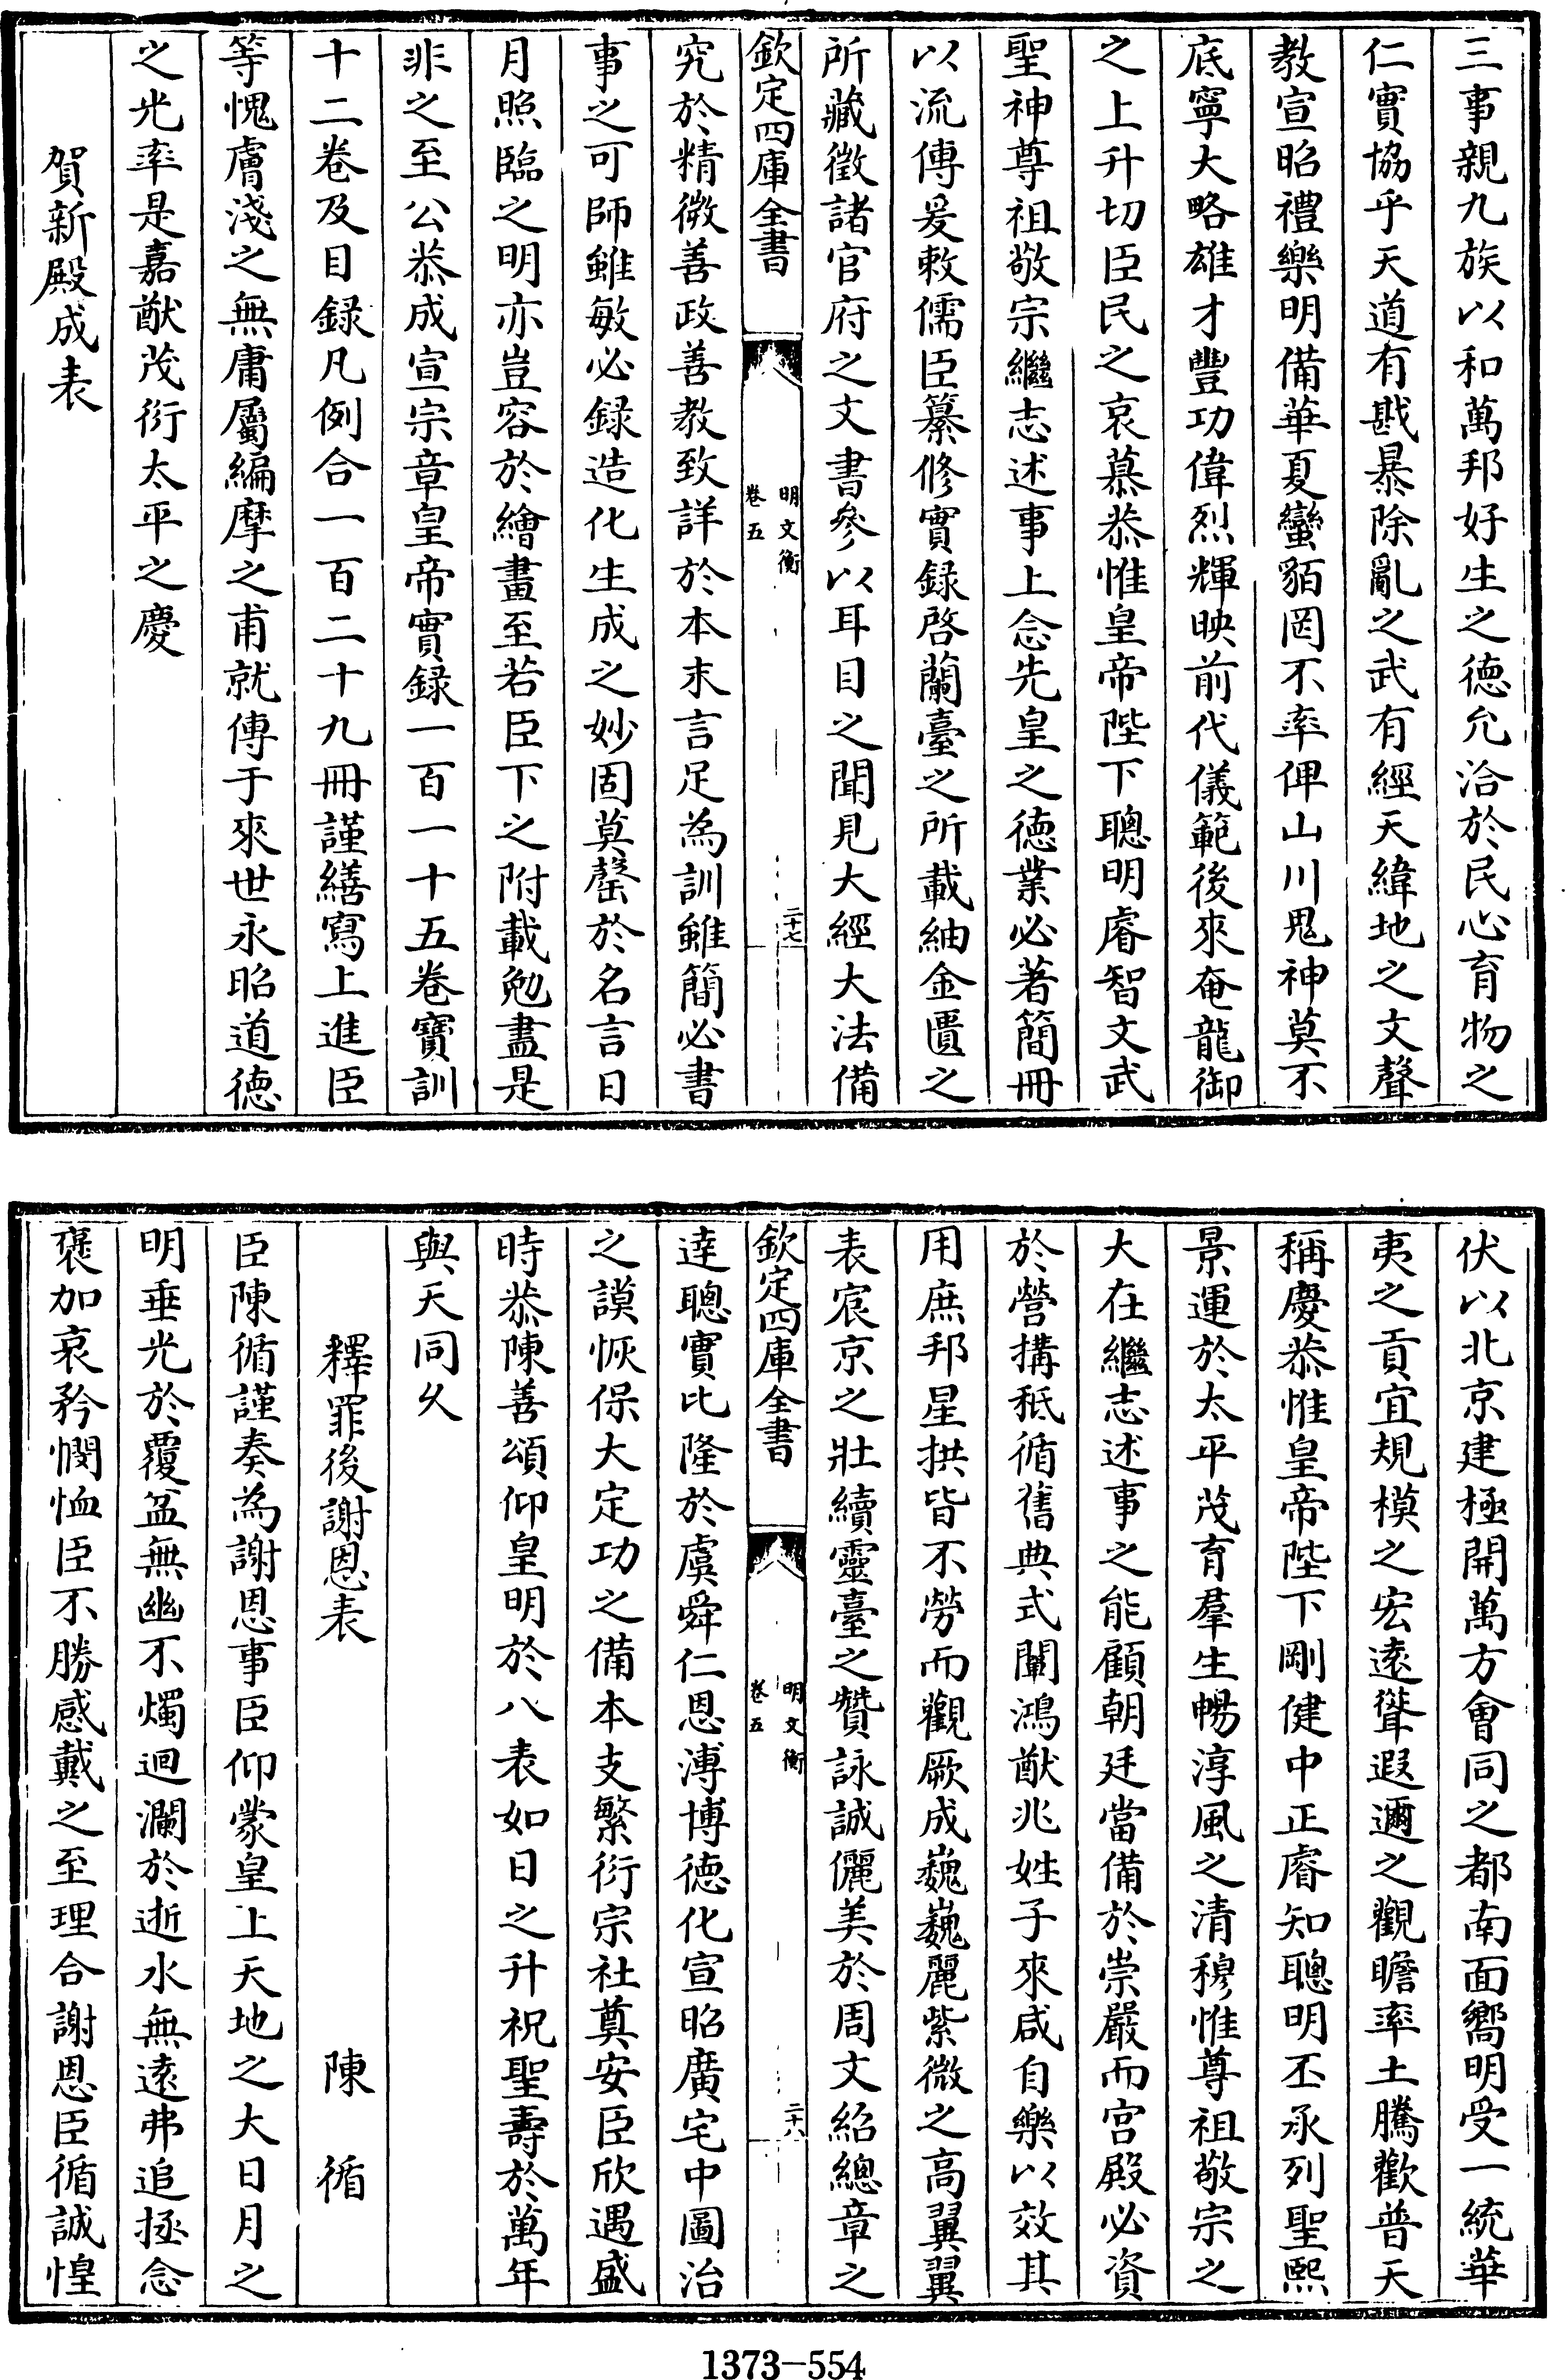 三事親九族以和萬邦好生之德允洽於民心育物之
仁實協乎天道有戡暴除亂之武有經天緯地之文聲
教宣昭禮樂明備華夏蠻貊罔不率俾山川鬼神莫不
底寧大略雄才豐功偉烈輝映前代儀範後來奄龍御
之上升切臣民之哀慕恭惟皇帝陛下聰明睿智文武
聖神尊祖敬宗繼志述事上念先皇之德業必著簡冊
以流傳爰敕儒臣纂修實録啓蘭臺之所載紬金匱之
所藏徵諸官府之文書參以耳目之聞見大經大法備
欽定四庫全書
明文衡
卷五
二十七
究於精微善政善教致詳於本末言足為訓雖簡必書
事之可師雖敏必録造化生成之妙固莫罄於名言日
月照臨之明亦豈容於繪畫至若臣下之附載勉盡是
非之至公恭成宣宗章皇帝實録一百一十五卷寶訓
十二卷及目録凡例合一百二十九冊謹繕寫上進臣
等愧膚淺之無庸屬編摩之甫就傳于來世永昭道德
之光率是嘉猷茂衍太平之慶
賀新殿成表
伏以北京建極開萬方會同之都南面嚮明受一統華
夷之貢宜規模之宏遠聳遐邇之觀瞻率土騰歡普天
稱慶恭惟皇帝陛下剛健中正睿知聰明丕承列聖熙
景運於太平茂育羣生暢淳風之清穆惟尊祖敬宗之
大在繼志述事之能顧朝廷當備於崇嚴而宫殿必資
於營搆秪循舊典式闡鴻猷兆姓子來咸自樂以效其
用庶邦星拱皆不勞而觀厥成巍巍麗紫微之高翼翼
表宸京之壯續靈臺之贊詠誠儷美於周文紹總章之
欽定四庫全書
明文衡
卷五
二十八
達聰實比隆於虞舜仁恩溥博德化宣昭廣宅中圖治
之謨恢保大定功之備本支繁衍宗社奠安臣欣遇盛
時恭陳善頌仰皇明於八表如日之升祝聖壽於萬年
與天同久
釋罪後謝恩表 陳循
臣陳循謹奏為謝恩事臣仰蒙皇上天地之大日月之
明垂光於覆盆無幽不燭迴瀾於逝水無遠弗追拯念
褒加哀矜憫恤臣不勝感戴之至理合謝恩臣循誠惶
1373-554